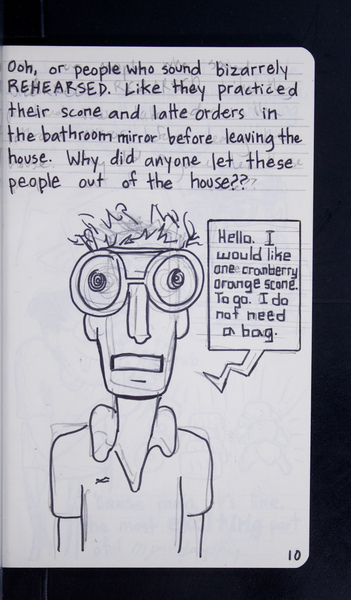 Ooh, or people who sound bizarrely
REHEARSED. Like they practiced
their scone and latte orders in
the bathroom mirror before leaving the
house. Why did anyone let these
people out of the house??
Hello. I
would like
one cranberry
orange scone.
To go. I do
not need
a bag.
10